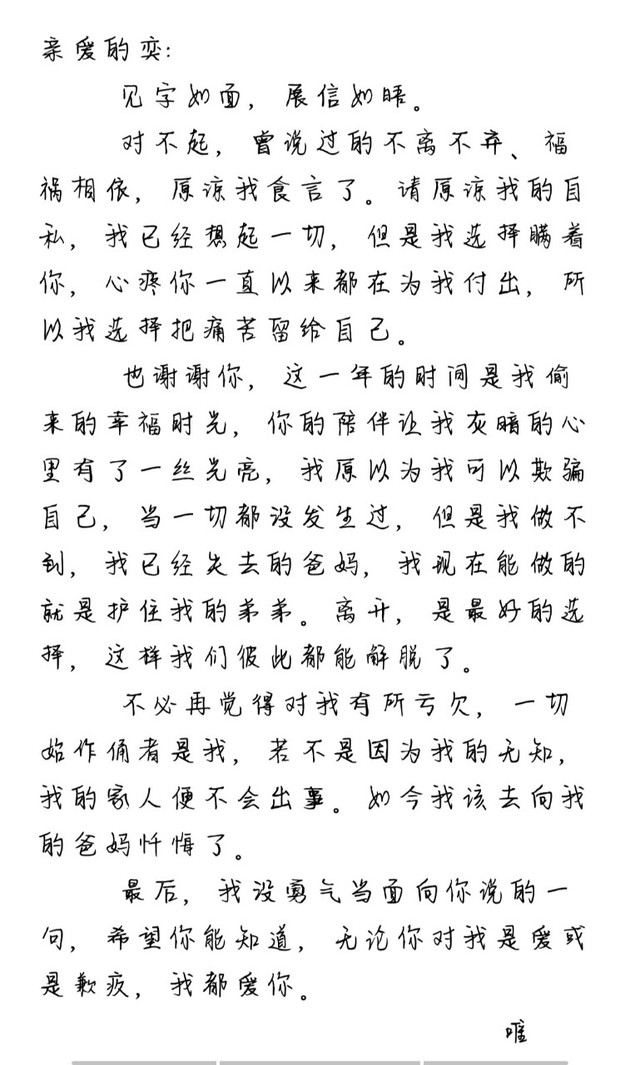 亲爱的奕:
见字如面，展信如晤。
对不起，曾说过的不离不弃、福
祸相依，原谅我食言了。请原谅我的自
私，我已经想起一切，但是我选择瞒着
你，心疼你一直以来都在为我付出，所
以我选择把痛苦留给自己。
也谢谢你，这一年的时间是我偷
来的幸福时光，你的陪伴让我灰暗的心
里有了一丝光亮，我原以为我可以欺骗
自己，当一切都没发生过，但是我做不
到，我已经失去的爸妈，我现在能做的
就是护住我的弟弟。离开，是最好的选
择，这样我们彼此都能解脱了。
不必再觉得对我有所亏欠，一切
始作俑者是我，若不是因为我的无知，
我的家人便不会出事。如今我该去向我
的爸妈忏悔了。
最后，我没勇气当面向你说的一
句，希望你能知道，无论你对我是爱或
是歉疚，我都爱你。
唯